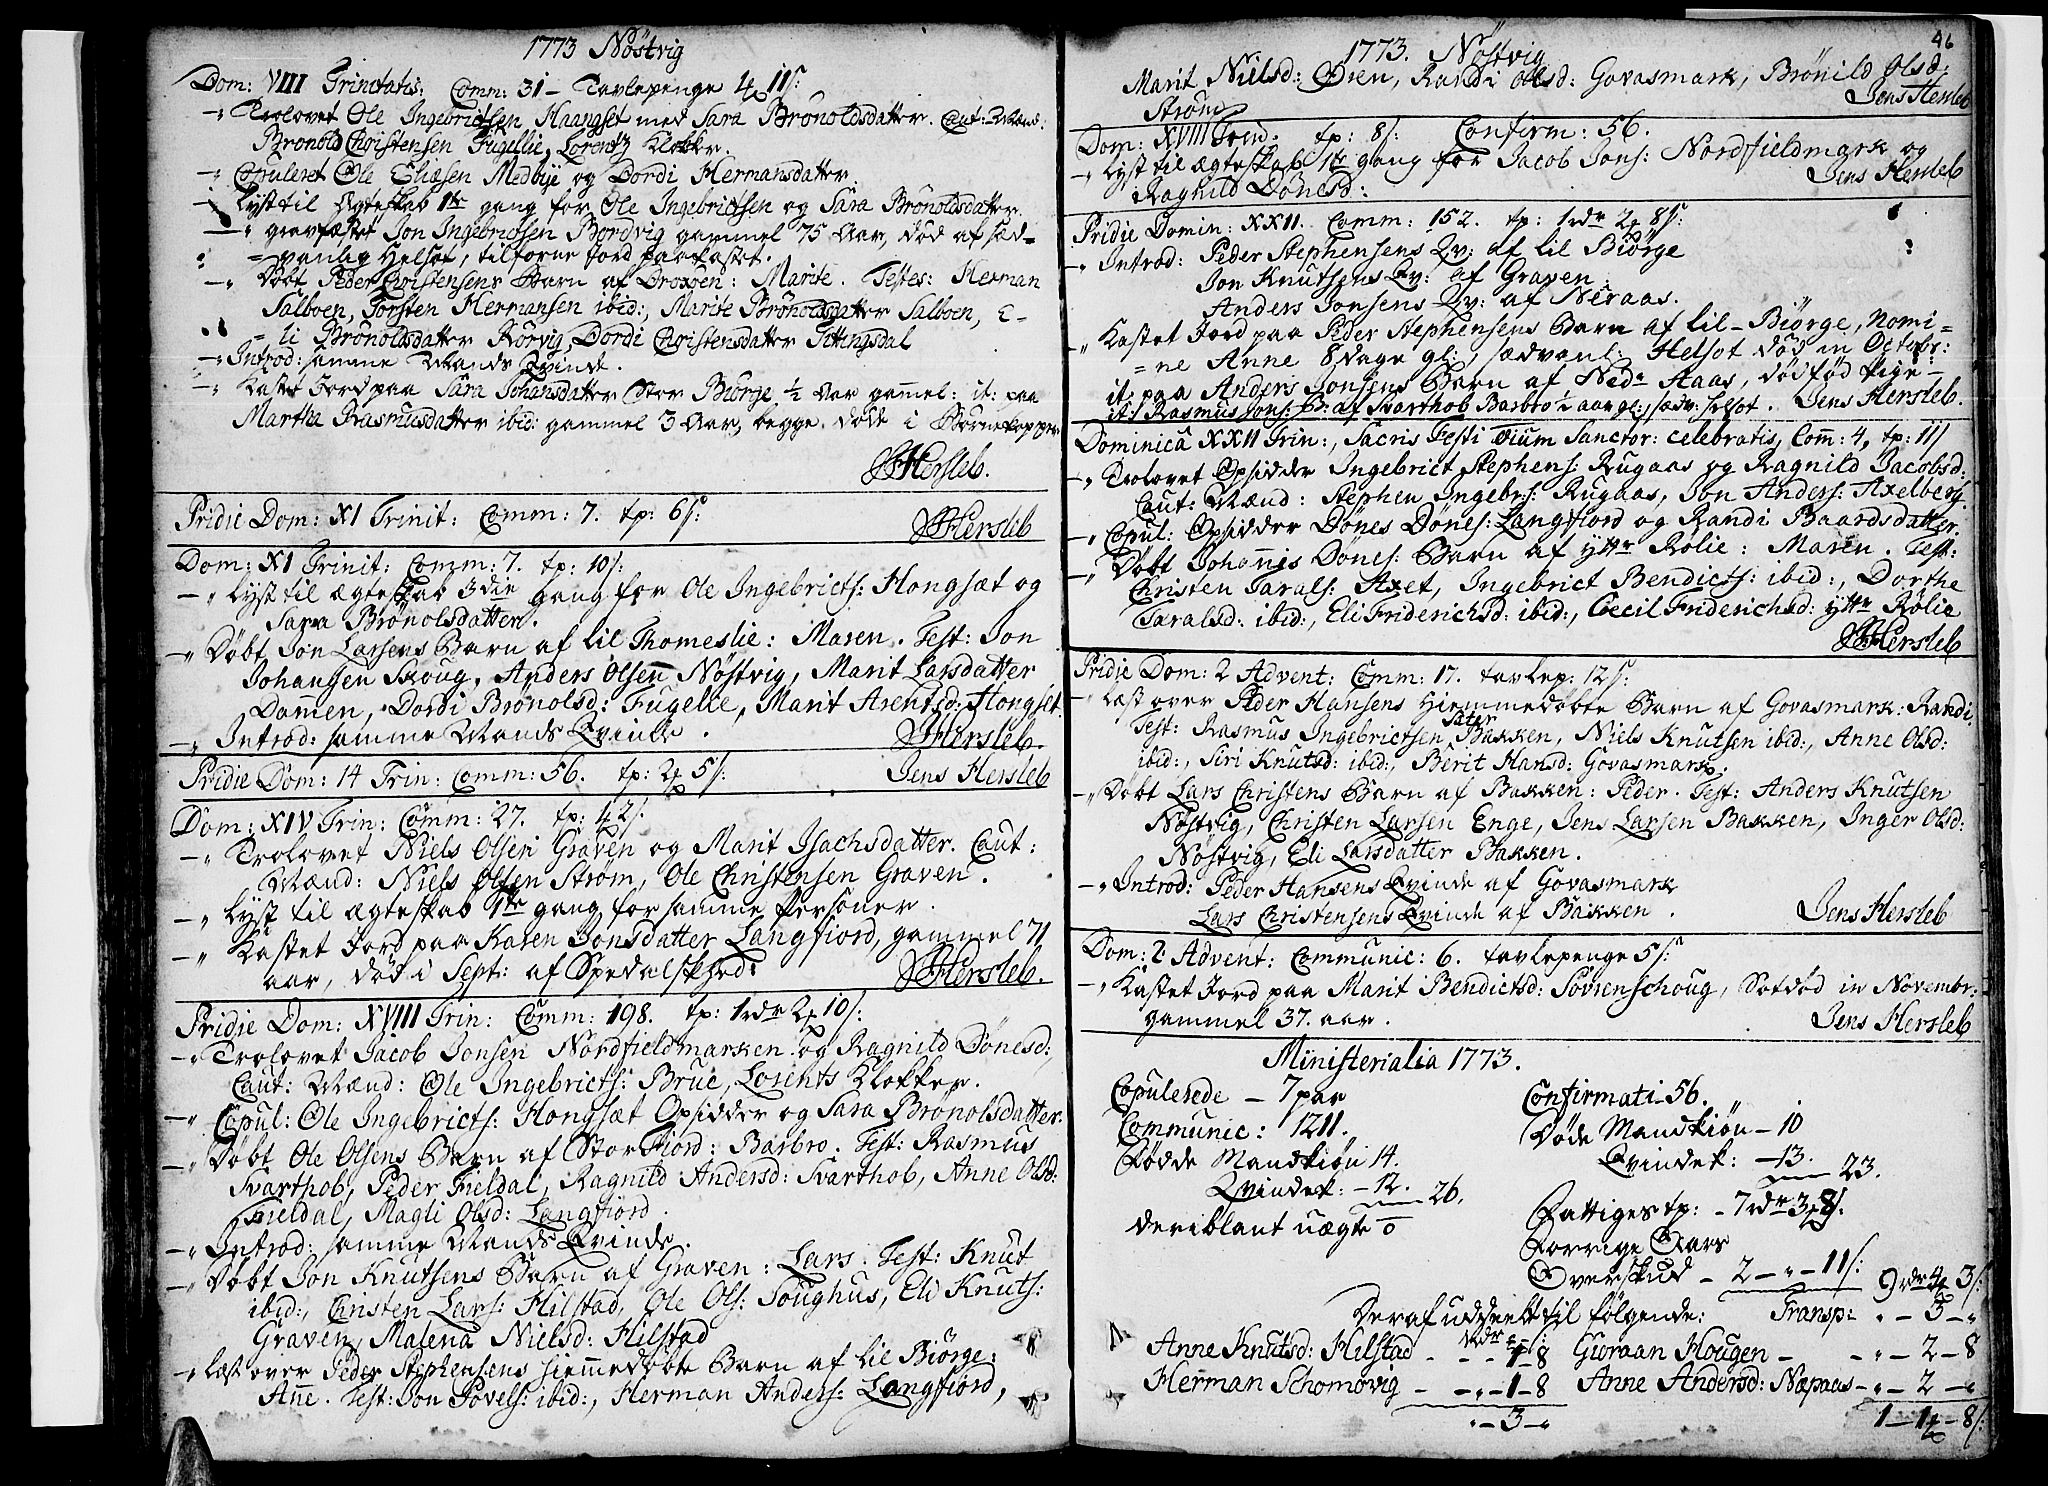 1773 Nöstvig
Dom: VIII Trinitatis: Comm: 31 – Tavlepenge 4 11 s:
–„ Trolovet Ole Ingebrictsen Haangset med Sara Brönoldsdatter. Caut: Mænd:
Bronold Christensen Fugellie, Lorentz Klokker.
–„ Copuleret Ole Eliæsen Medbye og Dordi Hermansdatter.
–„ Lyst til Ægteskab 1te gang for Ole Ingebrictsen og Sara Brönoldsdatter.
–„ gravfæstet Jon Ingebrictsen Bordvig gammel 75 Aar, død af sæd=
=vanlig Helsot, tilforne Jord paakastet.
–„ Døbt Peder Christensens Barn af Broxøen: Marite. Testes: Herman
Salboen, Torsten Hermansen ibid:, Marite Brönoldsdatter Salboen, E=
=li Brönoldsdatter Rörvig, Dordi Christensdatter Tittingsdal
–„ Introd: samme Mands Qvinde.
–„ Kastet Jord paa Sara Johansdatter Stor Biörge ½ Aar gam̄el: it: paa
Martha Rasmusdatter ibid: gammel 3 Aar, begge døde i Børnekopper
JHersleb.
Pridie Dom: XI Trinit: Comm: 7. tp: 6 s:
JHersleb
Dom: XI Trinit: Comm: 7. tp: 10 s:
–„ Lyst til ægteskab 3die gang for Ole Ingebricts: Hongsæt og
Sara Brönolsdatter.
–„ Døbt Jon Larsens Barn af lil Thomeslie: Maren. Test: Jon
Johansen Skoug, Anders Olsen Nöstvig, Marit Larsdatter
Domen, Dordi Brönolsd: Fugelie, Marit Arentsd: Hongset.
–„ Introd: samme Mands Qvinde.
JHersleb.
Pridie Dom: 14 Trin: Comm: 56. tp: 2 5 s:
Jens Hersleb
Dom: XIV Trin: Comm: 27. tp: 42 s.
–„ Trolovet Niels Olsen Graven og Marit Isachsdatter. Caut:
Mænd: Niels Olsen Strøm, Ole Christensen Graven.
–„ Lyst til ægteskab 1te gang for samme Personer.
–„ Kastet Jord paa Karen Jonsdatter Langfiord, gammel 71
aar, død i Sept: af Spedalskhed.
JHersleb.
Pridie Dom: XVIII Trin: Comm: 198. tp: 1 rdr 2 10 s.
–„ Trolovet Jacob Jonsen Nordfieldmarken og Ragnild Dönesd:,
Caut: Mænd: Ole Ingebricts: Brue, Lorents Klokker.
–„ Copul: Ole Ingebricts: Hongsæt Opsidder og Sara Brönolsdatter.
–„ Døbt Ole Olsens Barn af Storfiord: Barbro. Test: Rasmus
Svarthob, Peder Fieldal, Ragnild Andersd: Svarthob, Anne Olsd:
Fieldal, Magli Olsd: Langfiord.
–„ Introd: samme Mands Qvinde.
–„ Døbt Jon Knutsens Barn af Graven: Lars. Test: Knut
ibid:, Christen Lars: Hilstad, Ole Ols: Soughus, Eli Knuts:
Graven, Malena Nielsd: Hilstad
–„ Læst over Peder Stephensens hiem̄edøbte Barn af lil Biörge:
An̄e. Test: Jon Povels: ibid:, Herman Anders: Langfiord,
46
1773. Nöstvig
Marit Nielsd: Øren, Randi Olsd: Govasmark, Brönild Olsd:
Ström
Jens Hersleb
Dom: XVIII Trin. tp: 8 s: Confirm: 56.
–„ Lyst til ægteskab 1te gang for Jacob Jons: Nordfieldmark og
Raghild Dönesd:
Jens Hersleb
Pridie Domin: XXII. Comm: 152. tp: 1 rdr 2 8 s:
–„ Introd: Peder Stephensens Qv: af lil Biörge
Jon Knutsens Qv: af Graven
Anders Jonsens Qv: af Neraas.
„ Kastet Jord paa Peder Stephensens Barn af lil-Biörge, Nomi=
=ne Anne 8 dage gl:, sædvanl: Helsot død in Octobr:
it: paa Anders Jonsens Barn af Nedr Aaas, dødfød Pige –
it: Rasmus Jons: B: af Svarthob Barbro ½ aar gl:, sædv: helsot. Jens Hersleb.
Dominica XXII Trin:, Sacris Festi Oium Sanctor: celebratis, Com̄: 4, tp: 11 s
–„ Trolovet Opsidder Ingebrict Stephens: Rugaas og Ragnild Jacobsd:
Caut: Mænd: Stephen Ingebr:s: Rugaas, Jon Anders: Axelberg.
–„ Copul: Opsidder Dönes Dönes: Langfiord og Randi Baardsdatter.
–„ Døbt Johan̄is Dönes: Barn af yttr Rölie: Maren. Test:
Christen Tarals: Axet, Ingebrict Bendicts: ibid:, Dorthe
Taralsd: ibid:, Eli Friderichsd: ibid:, Cecil Friderichsd: yttr Rölie
JHersleb
Pridie Dom: 2 Advent: Comm: 17. tavlep: 12 s:
–„ Læst over Peder Hansens hiemmedøbte Barn af Govasmark: Randi.
Test: Rasmus Ingebrictsen Sæter Bakken, Niels Knutsen ibid:, Anne Olsd:
ibid:, Siri Knutsd: ibid:, Berit Hansd: Govasmark.
–„ Døbt Lars Christens Barn af Bakken: Peder. Test: Anders Knutsen
Nöstvig, Christen Larsen Enge, Jens Larsen Bakken, Inger Olsd:
Nöstvig, Eli Larsdatter Bakken.
–„ Introd: Peder Hansens Qvinde af Govasmark
Lars Christensens Qvinde af Bakken.
Jens Hersleb
Dom: 2 Advent: Communic: 6. tavlepenge 5 s:
–„ Kastet Jord paa Marit Bendictsd: Sövrenschoug, Sotdød in Novembr:
gammel 37. aar.
Jens Hersleb
Ministerialia 1773.
Copulerede – 7 par
Communic: 1211.
Fødde Mandkiön 14.
Qvindek: – 12. 26.
deriblant uægte 0
Confirmati – 56.
Døde Mandkiön – 10
Qvindek: – 13. 23.
Fattiges tp: – 7 rdr 3 8 s.
Forrige Aars
Overskud – 2 – „ – 11 s: 9 rdr 4 3 s:
Deraf uddeelt til følgende: Transp: „ – 3 – „
Anne Knutsd: Hilstad – – „ – 1 – 8 Giøraan Hougen – – „ – 2 – 8
Herman Schomövig – – „ – 1 – 8 Anne Andersd: Næpaas – „ – 2 – „
„ – 3 – „ 1 – 1 – 8 s.